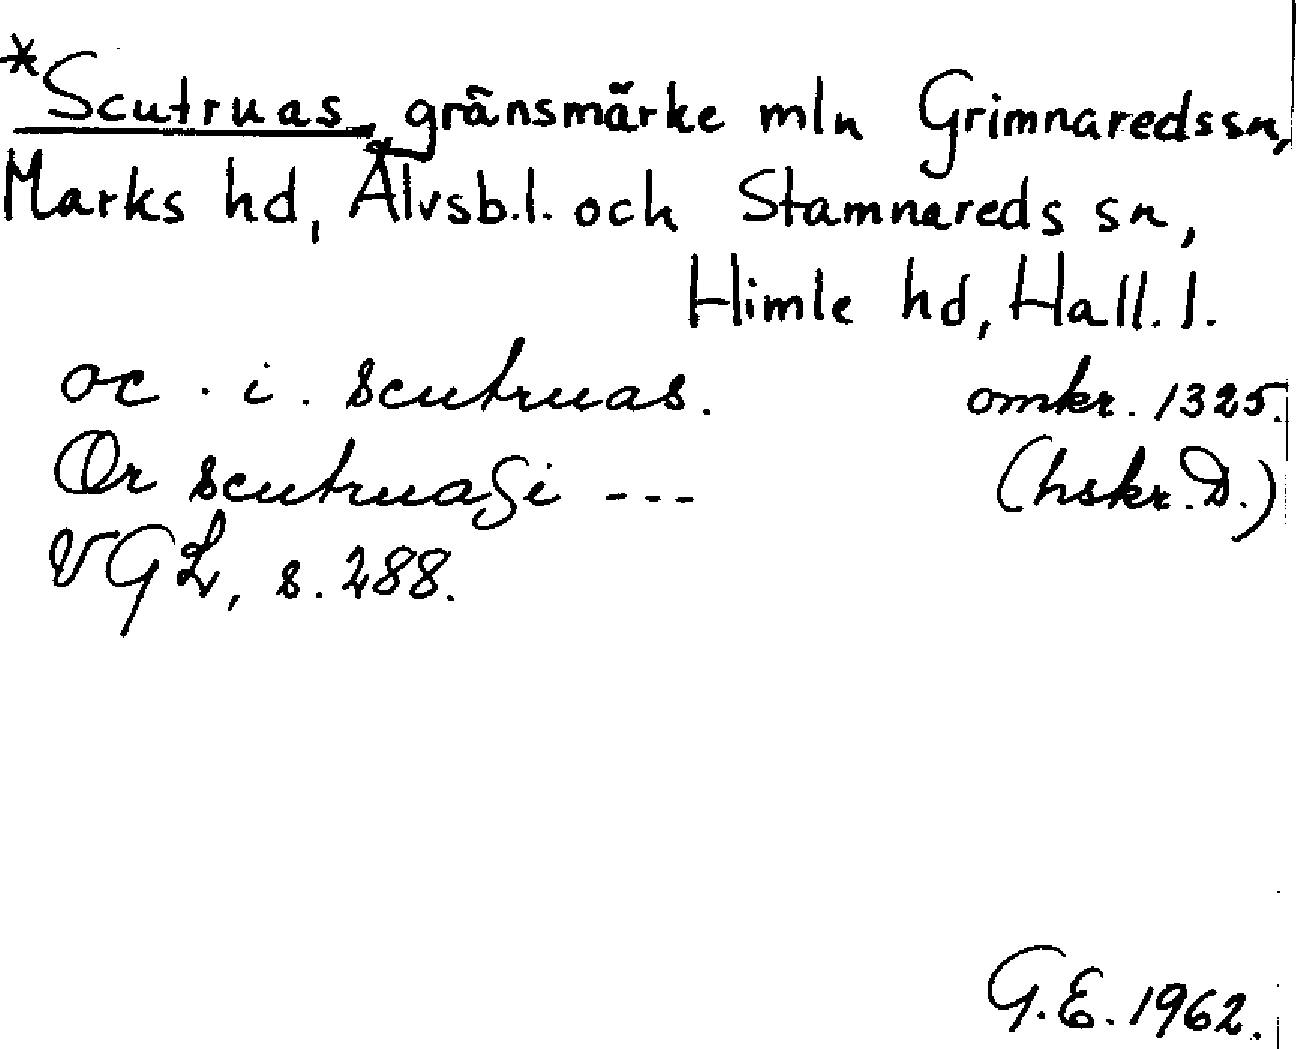 *Scutruas, gränsmärke mln Grimnareds sn,
Marks hd, Älvsb.l. och Stamnareds sn,
Himle hd, Hall. l.
oc . i . scutruas. omkr. 1325.
Or scutruaſi --- (hskr. D.)
VGL, s. 288.
G.E. 1962.